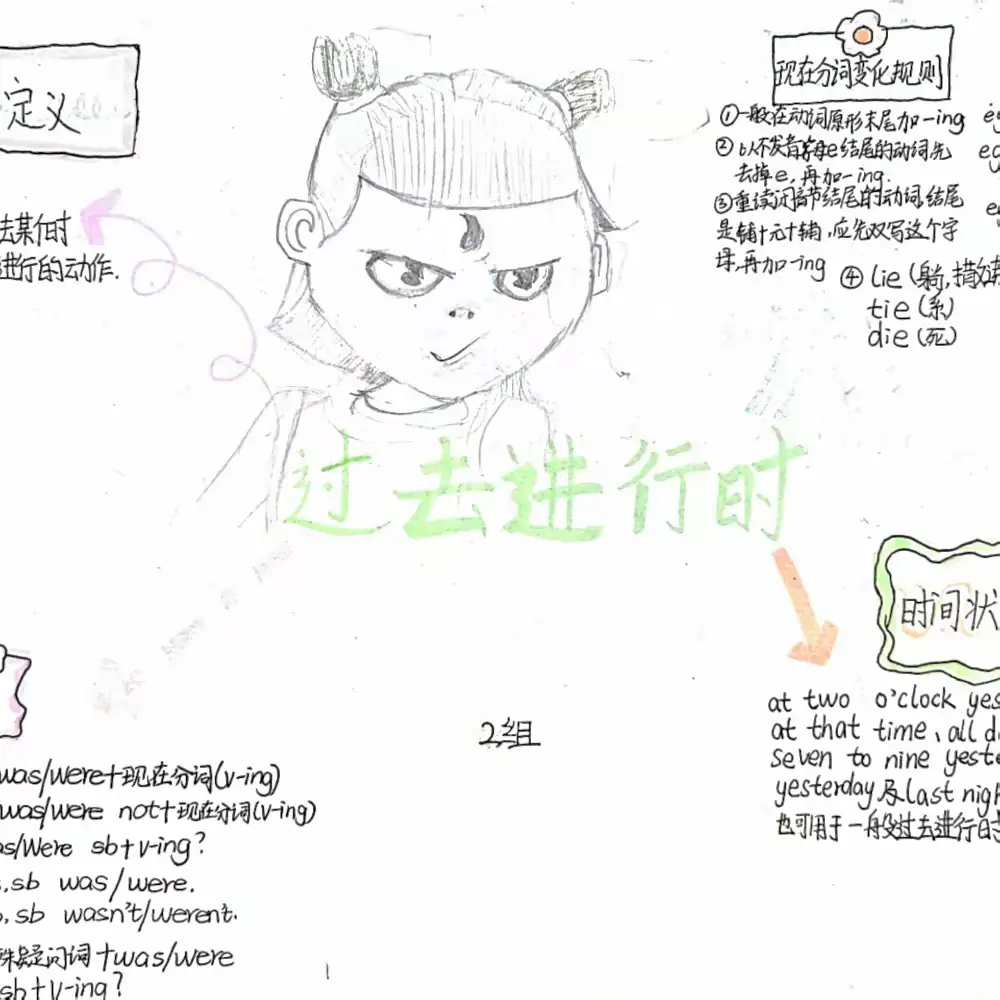 定义
去某个时
进行的动作.
现在分词变化规则
①一般在动词原形末尾加-ing
②以不发音字母e结尾的动词,先
去掉e,再加-ing.
③重读闭音节结尾的动词,结尾
是辅+元+辅,应先双写这个字
母,再加-ing
④lie(躺,撒谎
tie(系)
die(死)
过去进行时
时间状
at two o'clock yes
at that time、all d
seven to nine yeste
yesterday及last nigh
也可用于一般过去进行时
2组
was/were+现在分词(v-ing)
was/were not+现在分词(v-ing)
as/were sb+v-ing?
,sb was/were.
,sb wasn't/weren't.
殊疑问词+was/were
sb+v-ing?